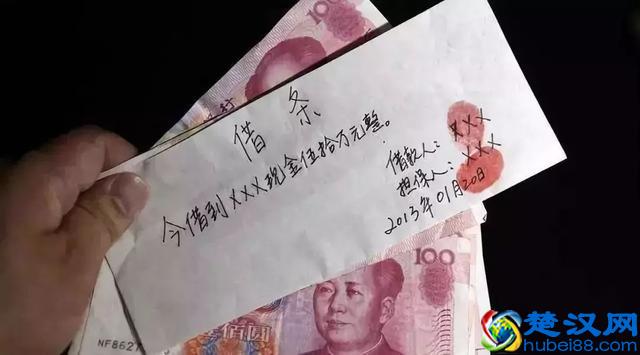 借条
今借到XXX现金伍拾万元整。
借款人：XXX
担保人：XXX
2013年01月20日
100
100
NF8627
佰圆
楚汉网
hubei88.com